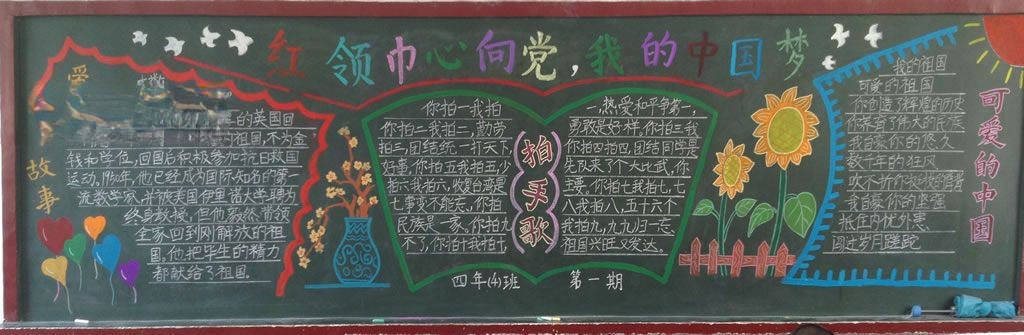 红领巾心向党，我的中国梦
爱
故事
的英国回
祖国，不为金
钱和学位，回国后积极参加抗日救国
运动。1950年，他已经成为国际知名的第一
流数学家，并被美国伊里诺大学聘为
终身教授，但他毅然带领
全家回到刚解放的祖
国，他把毕生的精力
都献给了祖国。
你拍一我拍
你拍二我拍二，勤劳
拍三，团结统一打天下，
你拍五我拍五，少
拍六我拍六，收复台湾是
七事变不能忘，你拍
民族是一家，你拍九
不了，你拍十我拍十，
拍手歌
一，热爱和平争第一，
勇敢是好样，你拍三我
你拍四拍四，团结同学是
先队来了个大比武，你
主要，你拍七我拍七，七
八我拍八，五十六个
我拍九，九九归一忘
祖国兴旺又发达。
四年(4)班 第一期
我的祖国
可爱的祖国
你创造了辉煌的历史
你养育了伟大的民族
我自豪你的悠久
数千年的狂风
吹不折你的脊背
我自豪你的坚强
抵住内忧外患
闯过岁月蹉跎
可爱的中国